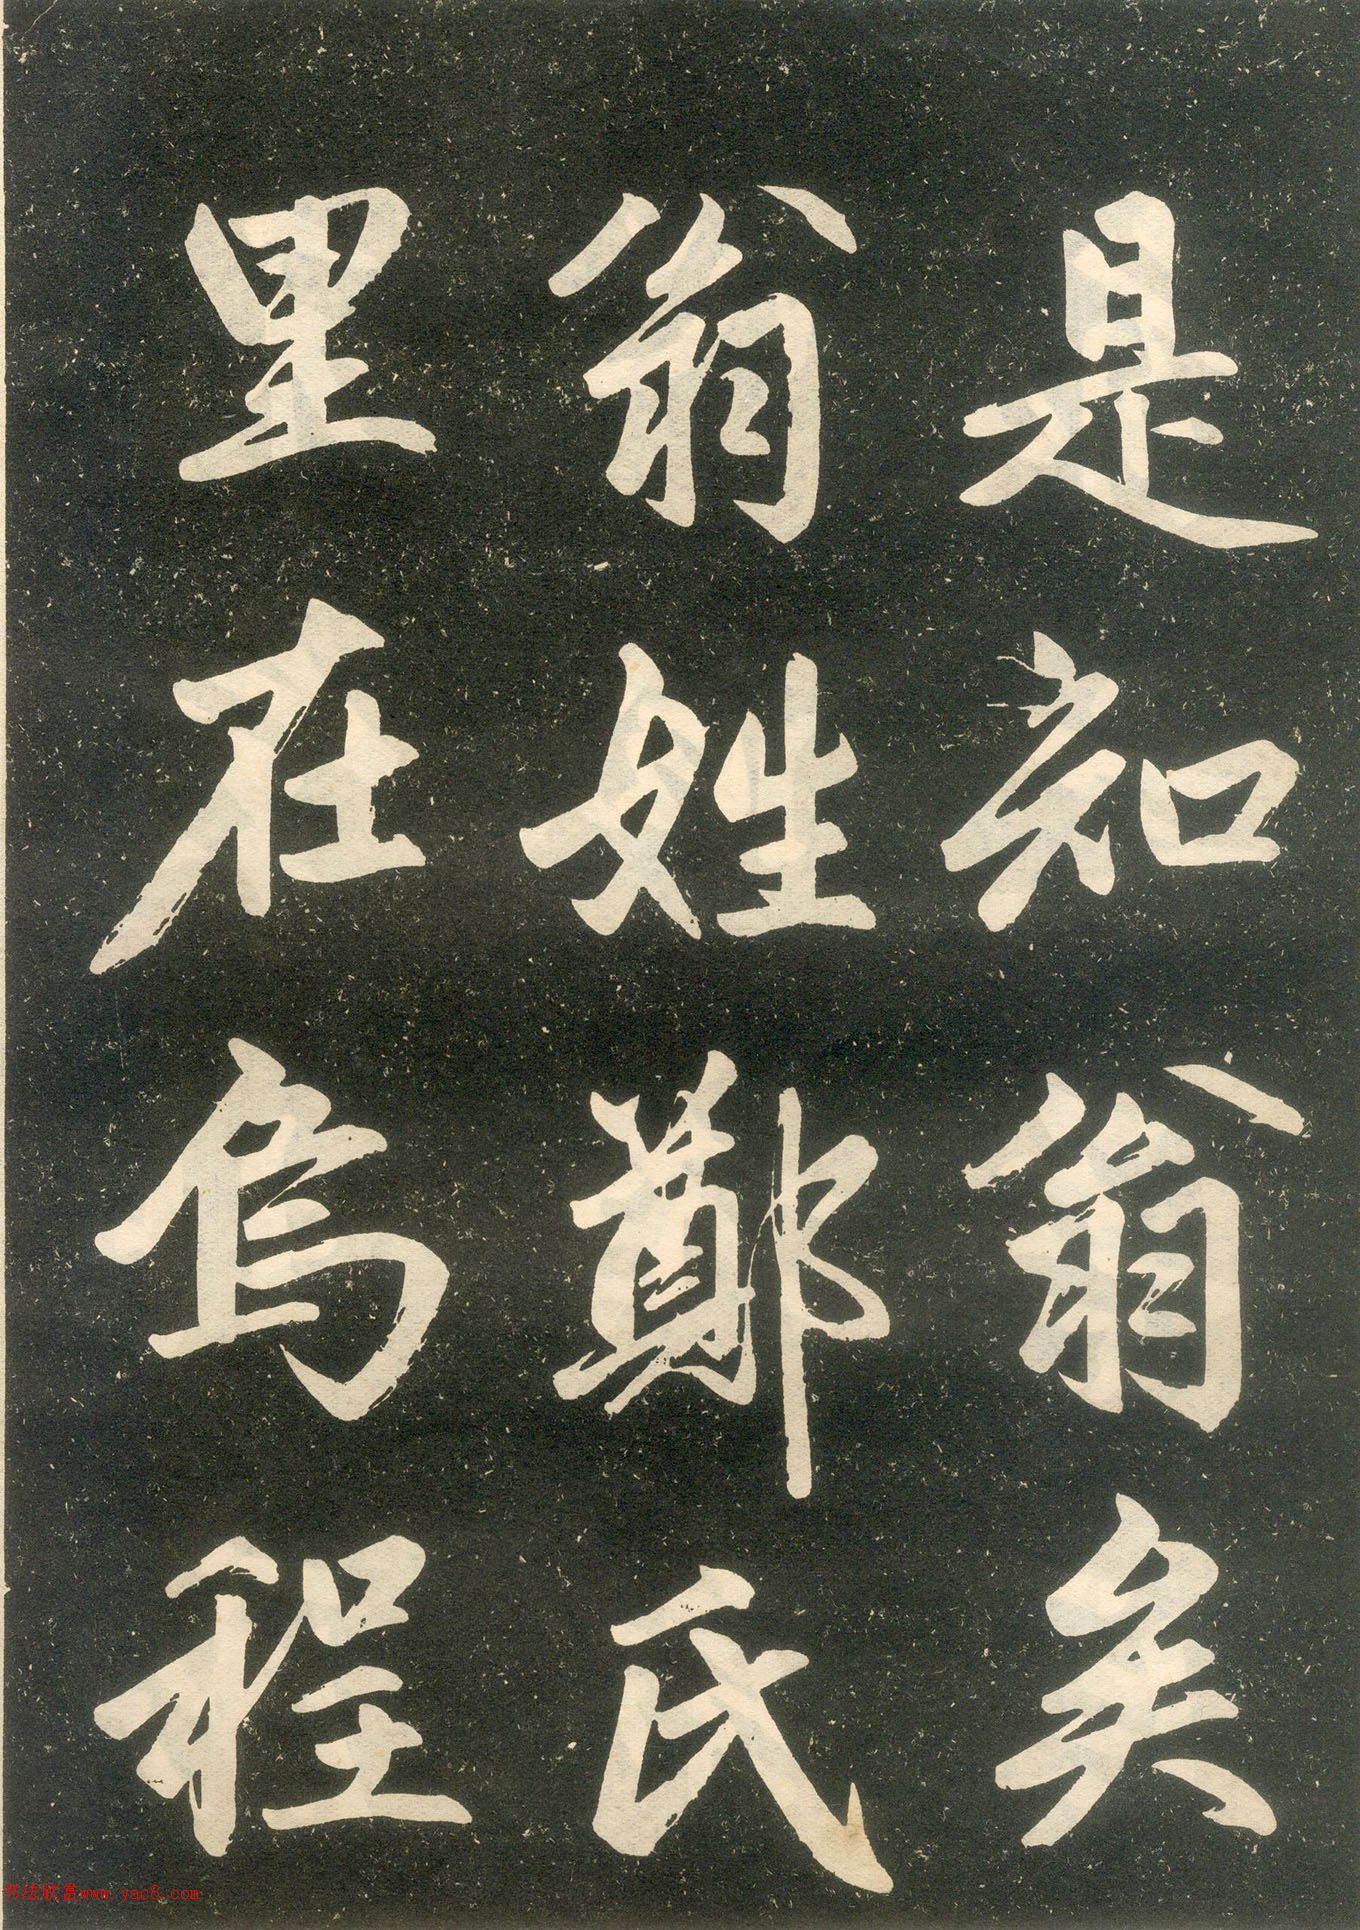 是知翁矣
翁姓鄭氏
里在烏程
书法欣赏www.yac8.com